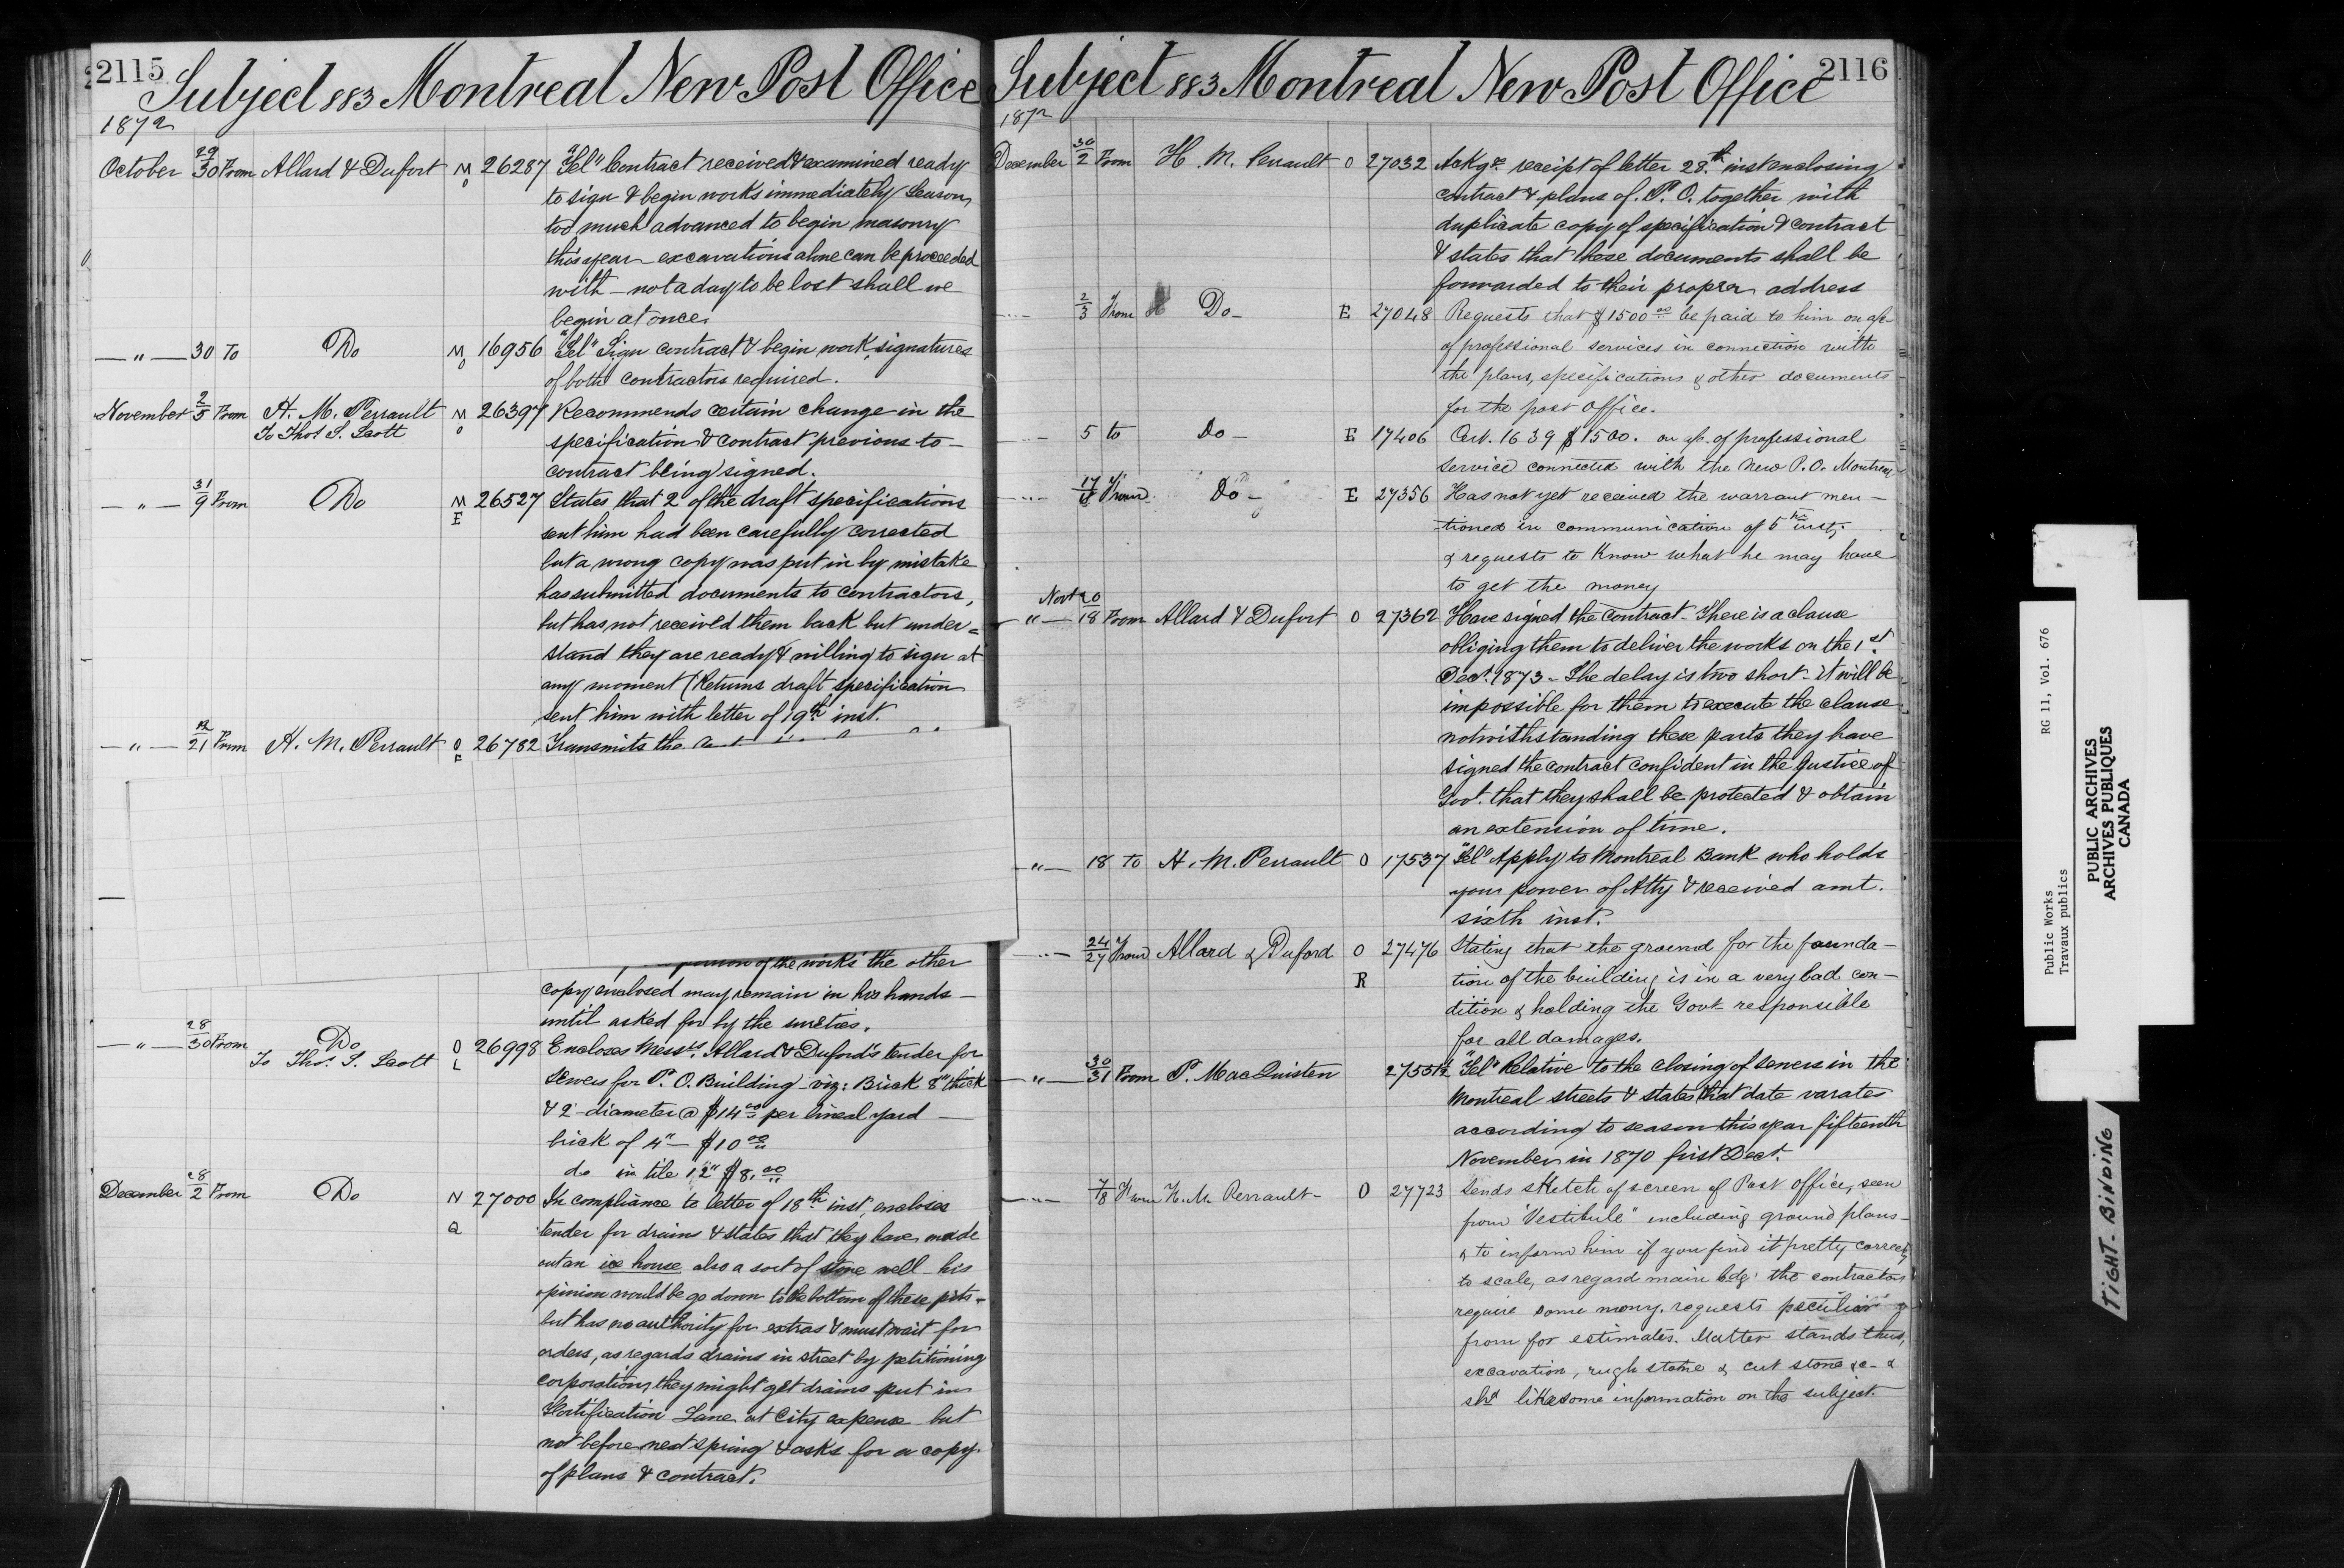 2115
Subject 883 Montreal New Post Office
1872
October 29/30 From Allard & Dufort M O 26287 "Tel" Contract received & examined ready
to sign & begin works immediately Season
too much advanced to begin masonry
this year excavations alone can be proceeded
with - not a day to be lost shall we
begin at once.
— " — 30 To Do M O 16956 "Tel" Sign contract & begin work, signatures
of both contractors required.
November 2/5 From H. M. Perrault M O 26397 Recommends certain change in the
To Thos S. Scott specification & contract previous to
contract being signed.
— " — 31/9 From Do M E 26527 States that 2 of the draft specifications
sent him had been carefully corrected
but a wrong copy was put in by mistake
has submitted documents to contractors,
but has not received them back but under=
stand they are ready & willing to sign at
any moment (Returns draft specification
sent him with letter of 19th inst.
— " — 21 From H. M. Perrault O 26782 Transmits the
of the works the other
copy enclosed may remain in his hands —
until asked for by the sureties.
— " — 28/30 From Do O L 26998 Encloses Messrs. Allard & Duford's tender for
To Thos. S. Scott sewers for P. O. Building - viz: Brick 8" thick
& 2 diameter @ $14 00 per lineal yard —
brick of 4" — $10 00
do in tile 12" $8. 00
December 28/2 From Do N Q 27000 In compliance to letter of 18th inst, encloses
tender for drains & states that they have made
out an ice house also a sort of stone well - his
opinion would be go down to the bottom of these pits -
but has no authority for extras & must wait for
orders, as regards drains in street by petitioning
corporation, they might get drains put in
Fortification Lane at City expense but
not before next spring & asks for a copy
of plans & contract.
2116
Subject 883 Montreal New Post Office
1872
December 30/2 From H. M. Perrault O 27032 Ackgs. receipt of letter 28th inst enclosing
contract & plans of P. O. together with
duplicate copy of specification & contract
& states that these documents shall be
forwarded to their proper address
2/3 From Do — E 27048 Requests that $1500 00 be paid to him on a/c
of professional services in connection with
the plans, specifications & other documents
for the post office.
5 to Do — E 17406 Cert. 1639 $1500. on a/c. of professional
service connected with the New P. O. Montreal
17 From Do — E 27356 Has not yet received the warrant men —
tioned in communication of 5th inst;
& requests to know what he may have
to get the money
— " — Novr 20/18 From Allard & Dufort O 27362 Have signed the contract - There is a clause
obliging them to deliver the works on the 1st
Dec. 1873 - The delay is two short - it will be
impossible for them to execute the clause
notwithstanding these parts they have
signed the contract confident in the Justice of
Govt. that they shall be protected & obtain
an extension of time.
— " — 18 To H. M. Perrault O 17537 "Tel" Apply to Montreal Bank who holds
your power of Atty & received amt.
sixth inst.
24/27 From Allard & Duford O R 27476 Stating that the ground for the founda —
tion of the building is in a very bad con —
dition & holding the Govt responsible
for all damages.
— " — 30/31 From P. MacQuisten 27551½ "Tel" Relative to the closing of sewers in the
Montreal streets & states that date varates
according to season this year fifteenth
November in 1870 first Dect.
7/8 From H. M. Perrault - O 27723 Sends sketch of screen of Post office, seen
from "Vestibule" including ground plans -
& to inform him if you find it pretty correctly
to scale, as regard main bdg. the contractors
require some mony. requests peculiar
from for estimates. Matter stands thus,
excavation, rugh stone & cut stone &c - &
shd like some information on the subject.
Public Works RG 11, Vol. 676
Travaux publics
PUBLIC ARCHIVES
ARCHIVES PUBLIQUES
CANADA
TIGHT BINDING